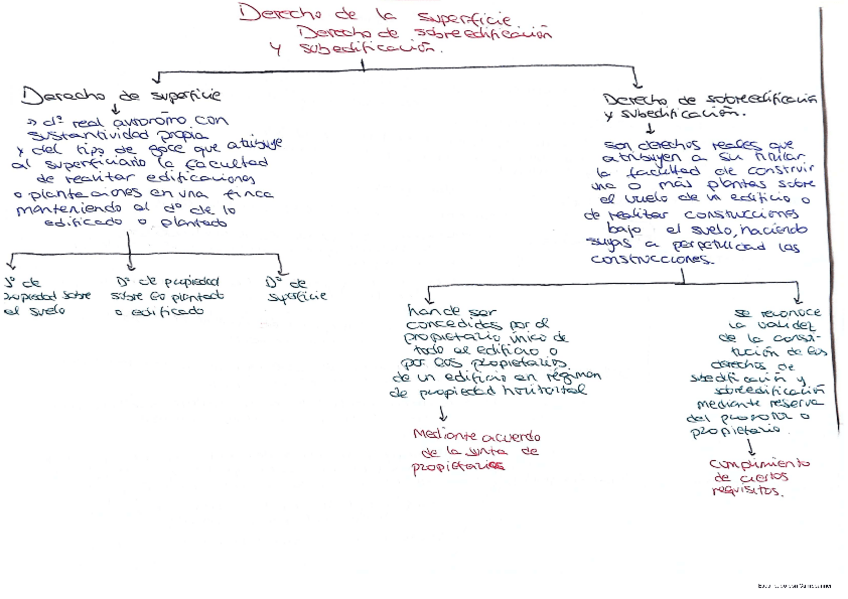 Derecho de la superficie.
Derecho de sobreedificación
y subedificación.
Derecho de superficie
→ dº real autónomo con
sustantividad propia
y del tipo de goce que atribuye
al superficiario la facultad
de realizar edificaciones
o plantaciones en una finca
manteniendo el dº de lo
edificado o plantado
Dº de
propiedad sobre
el suelo
Dº de propiedad
sobre lo plantado
o edificado
Dº de
superficie
Derecho de sobreedificación
y subedificación.
son derechos reales que
atribuyen a su titular
la facultad de construir
una o más plantas sobre
el vuelo de un edificio o
de realizar construcciones
bajo el suelo, haciendo
suyas a perpetuidad las
construcciones.
han de ser
concedidas por el
propietario único de
todo el edificio o
por los propietarios
de un edificio en régimen
de propiedad horizontal
Mediante acuerdo
de la junta de
propietarios
se reconoce
la validez
de la consti-
tución de los
derechos de
subedificación y
sobreedificación
mediante reserva
del promotor o
propietario.
cumplimiento
de ciertos
requisitos.